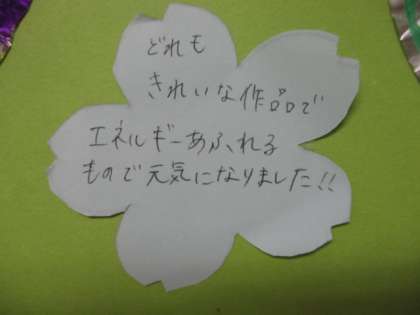 どれも
きれいな作品で
エネルギーあふれる
もので元気になりました!!